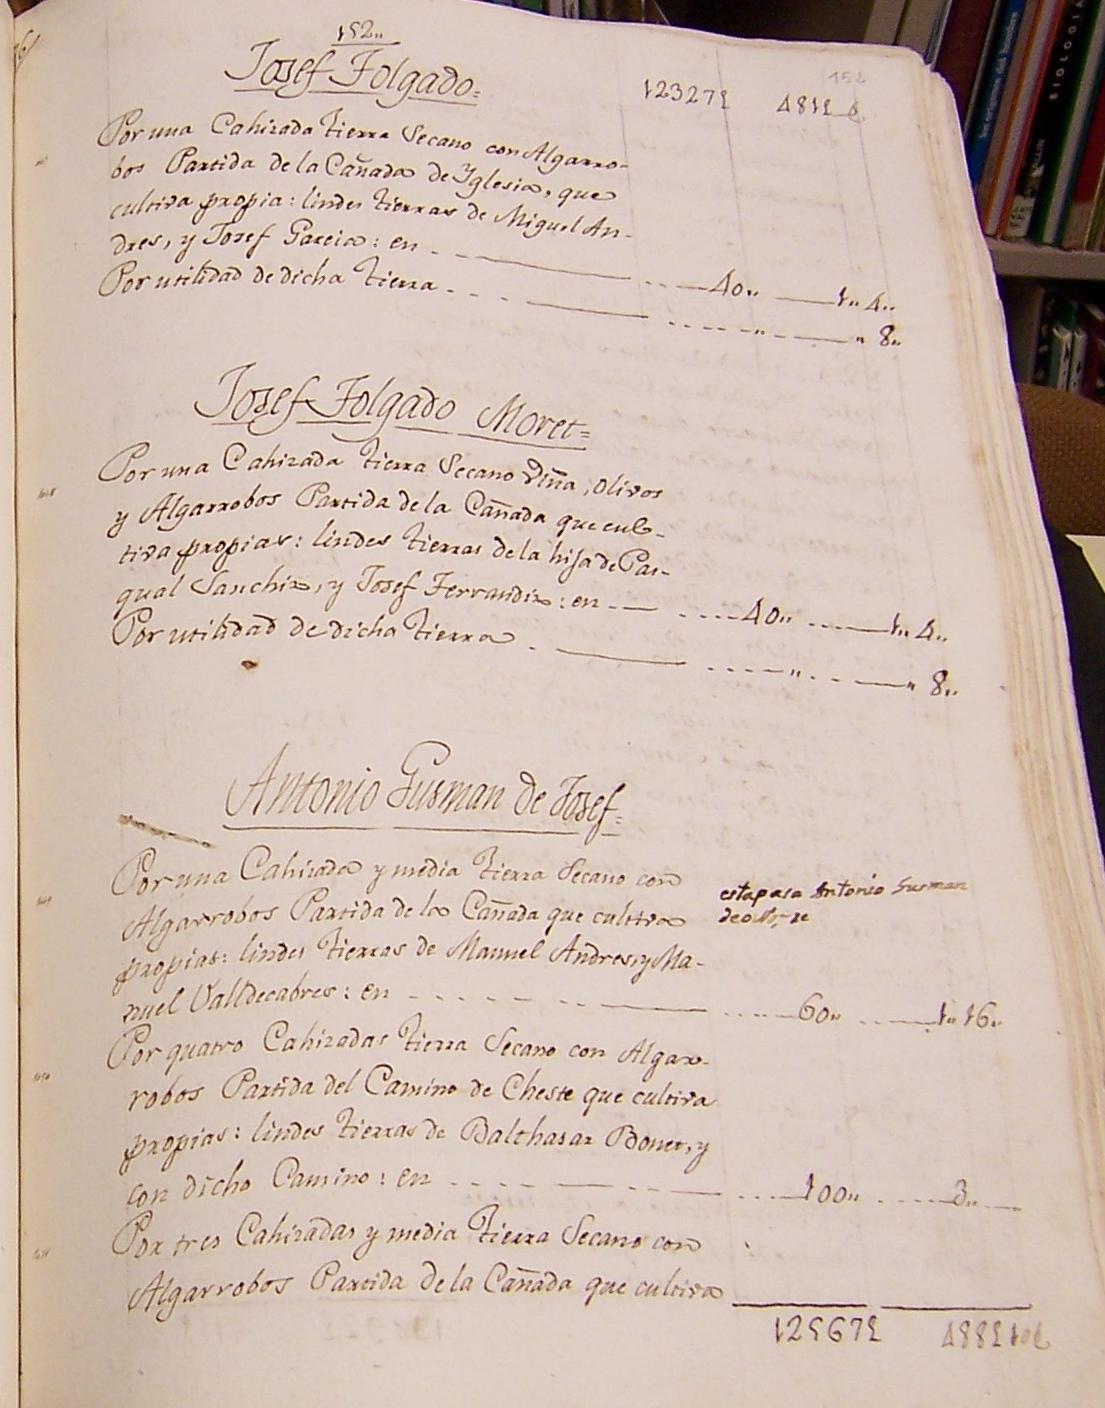 152,,
152
Josef Folgado=
123272
Por una Cahizada tierra Secano con Algarro-
bos Partida de la Cañada de Yglesia, que
cultiva propia: lindes tierras de Miguel An-
dres, y Josef Garcia: en 40,, 1,, 4,,
Por utilidad de dicha tierra ,, ,, 8,,
Josef Folgado Moret=
Por una Cahizada tierra Secano Viña, olivos
y Algarrobos Partida de la Cañada que cul-
tiva propias: lindes tierras de la hija de Pas-
qual Sanchiz, y Josef Ferrandiz: en 40,, 1,, 4,,
Por utilidad de dicha tierra ,, ,, 8,,
Antonio Gusman de Josef=
Por una Cahizada y media tierra Secano con
Algarrobos Partida de la Cañada que cultiva
propias: lindes tierras de Manuel Andres, y Ma-
nuel Valldecabres: en 60,, 1,, 16,,
esta pasa Antonio Gusman
Por quatro Cahizadas tierra Secano con Algar-
robos Partida del Camino de Cheste que cultiva
propias: lindes tierras de Balthasar Bonet, y
con dicho Camino: en 100,, 3,,
Por tres Cahizadas y media tierra Secano con
Algarrobos Partida de la Cañada que cultiva
125672
BIOLOGIA